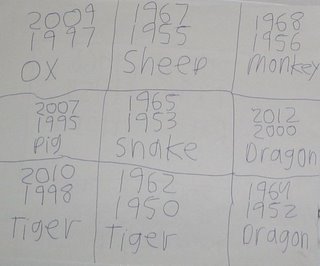 2009
1997
OX
1967
1955
Sheep
1968
1956
monkey
2007
1995
pig
1965
1953
Snake
2012
2000
Dragon
2010
1998
Tiger
1962
1950
Tiger
1964
1952
Dragon